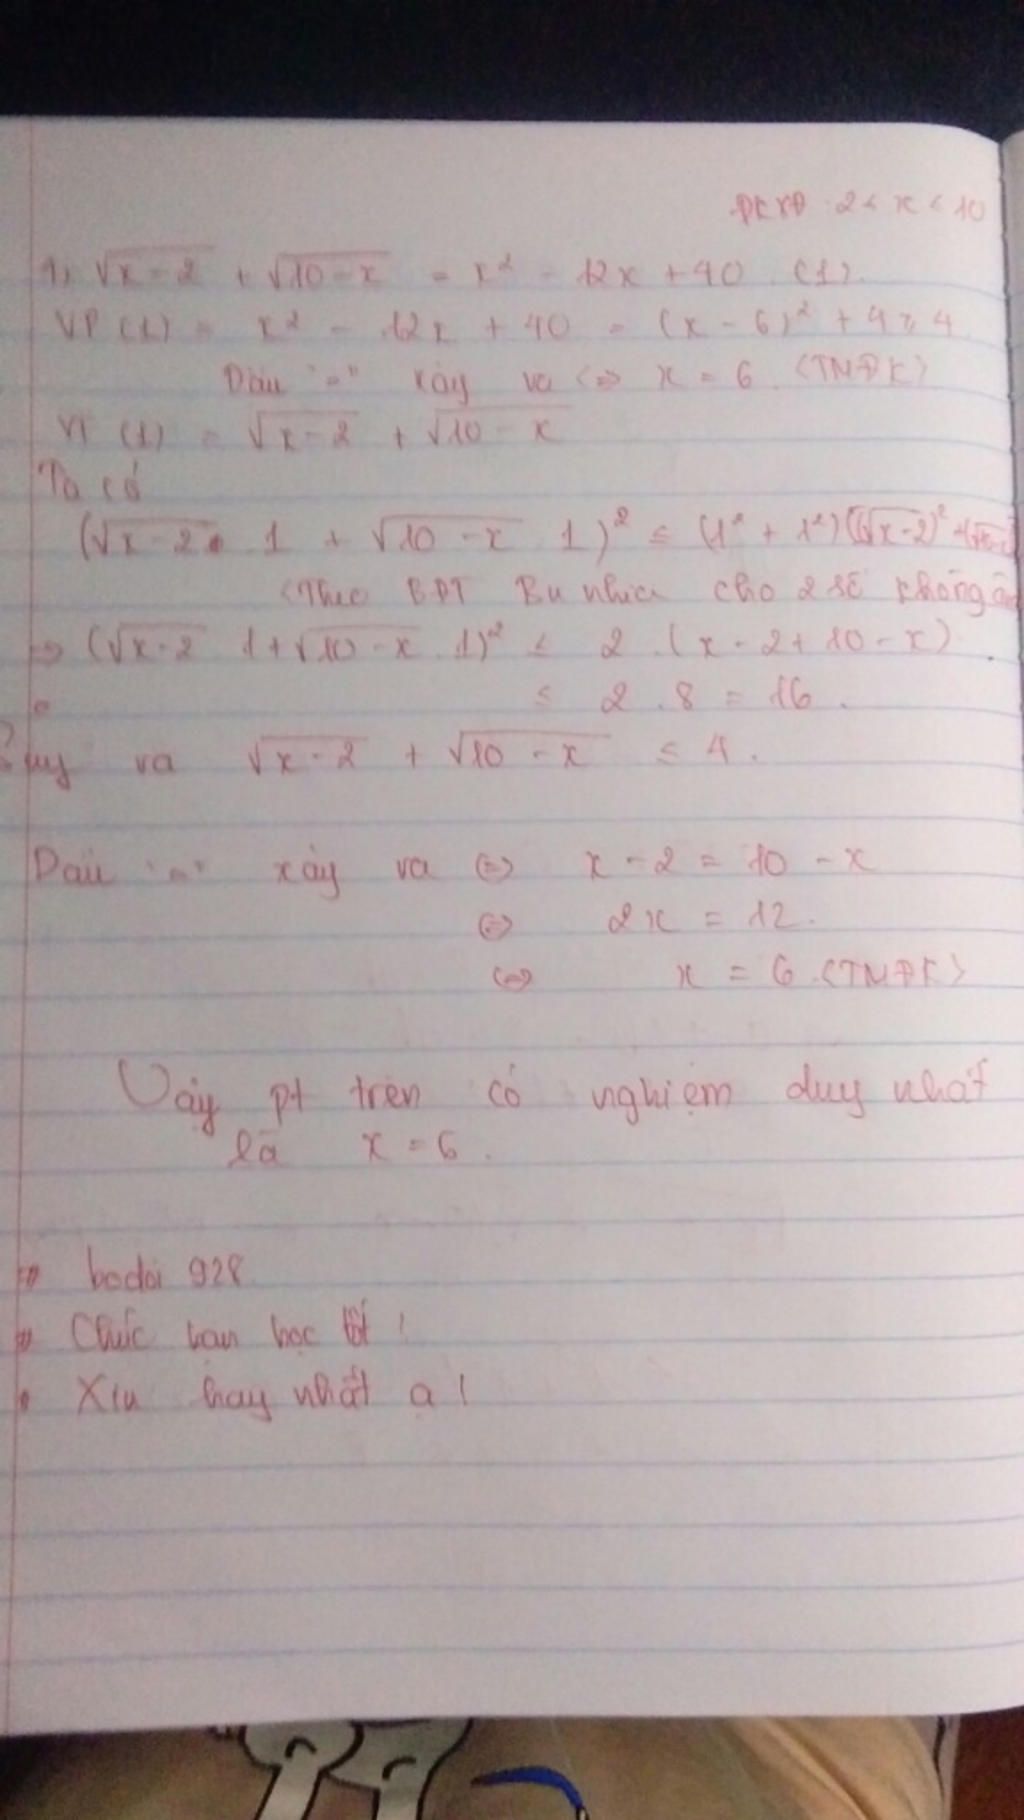 ĐKXĐ: 2 < x < 10
1, √x-2 + √10-x = x² - 12x + 40 (1)
VP (1) = x² - 12x + 40 = (x - 6)² + 4 ≥ 4
Dấu "=" xảy ra <=> x = 6 (TMĐK)
VT (1) = √x-2 + √10-x
Ta có
(√x-2 . 1 + √10-x . 1)² ≤ (1² + 1²)((√x-2)² +
(Theo BĐT Bunhia cho 2 số không
=> (√x-2 . 1 + √10-x . 1)² ≤ 2 . (x - 2 + 10 - x)
≤ 2 . 8 = 16 .
ra √x-2 + √10-x ≤ 4 .
Dấu "=" xảy ra <=> x - 2 = 10 - x
<=> 2x = 12 .
<=> x = 6 (TMĐK)
Vậy pt trên có nghiệm duy nhất
là x = 6 .
928
Chúc bạn học tốt !
Xin hay nhất ạ !